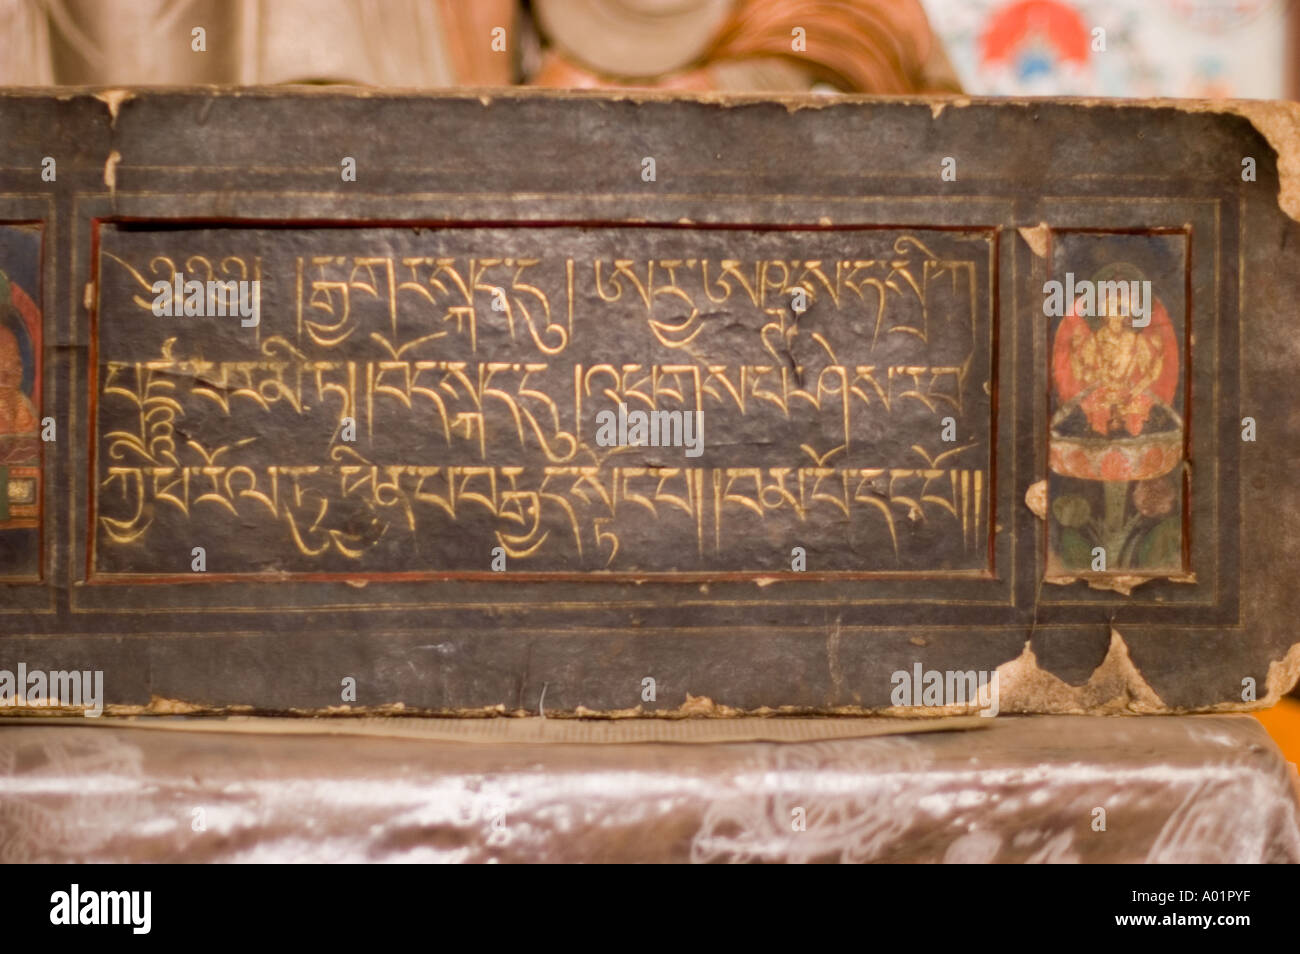 ༄༅༅། །རྒྱ་གར་སྐད་དུ། ཨཱརྱ་ཨཥྚ་སཱ་ཧ་སྲི་ཀཱ་
བོད་སྐད་དུ། འཕགས་པ་ཤེས་རབ་
ཀྱི་ཕ་རོལ་ཏུ་ཕྱིན་པ་བརྒྱད་སྟོང་པ།། བམ་པོ་དང་པོ།།།
alamy
alamy
Image ID: A01PYF
www.alamy.com